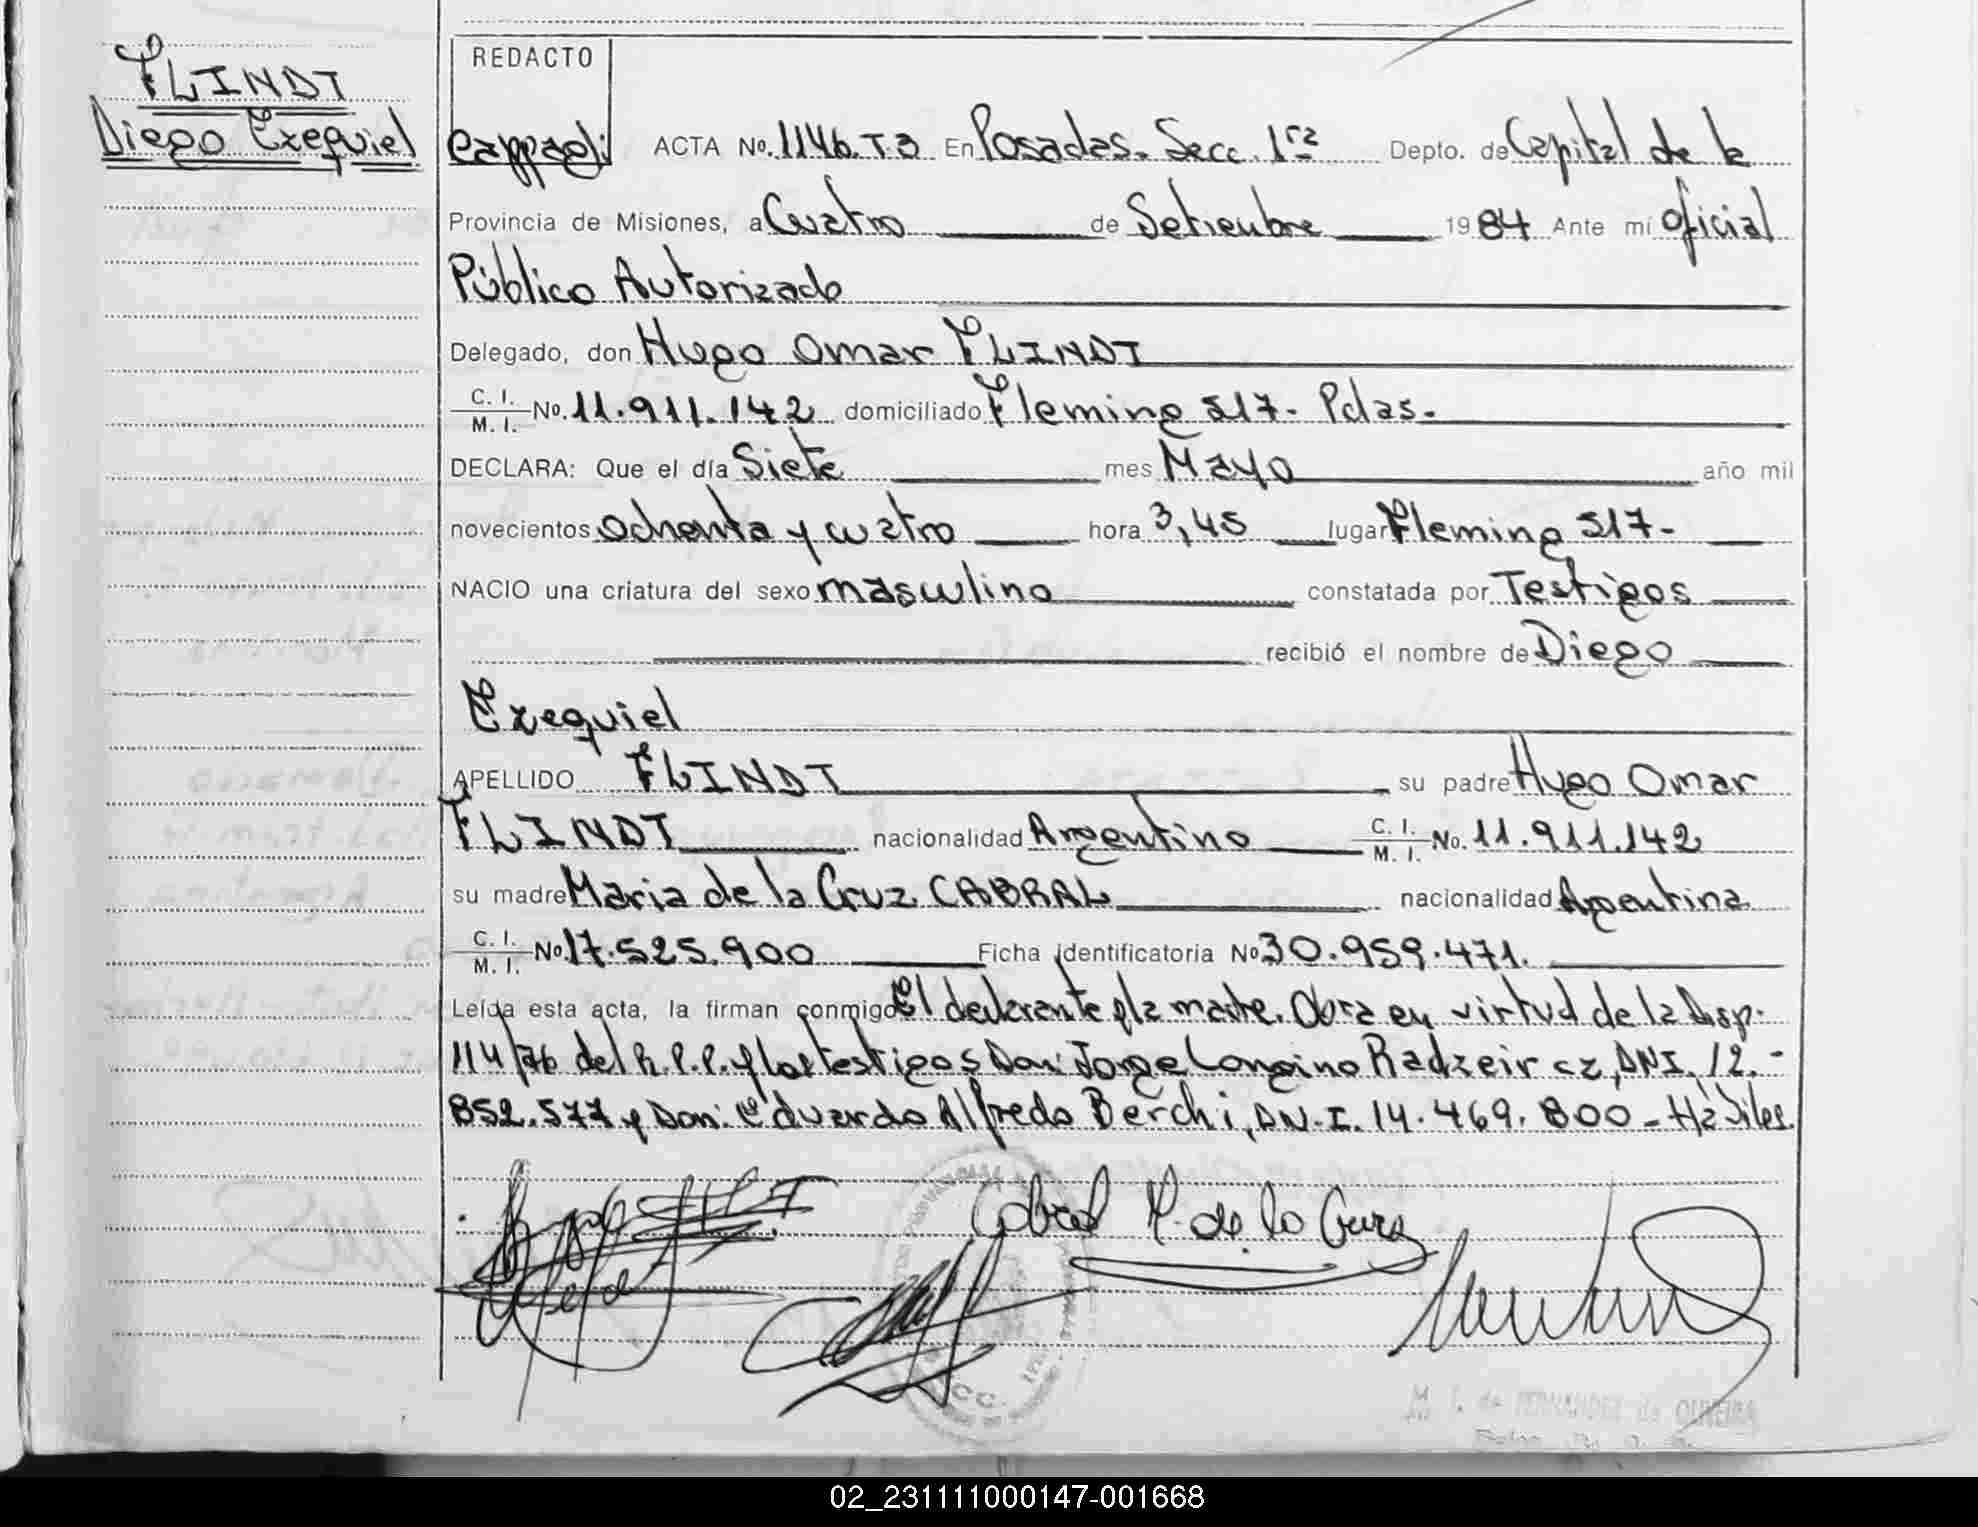 FLINDT
Diego Ezequiel
REDACTO
ACTA No. 1146.T3 En Posadas. Secc. 1ra Depto. de Capital de la
Provincia de Misiones, a Cuatro de Setiembre 1984 Ante mí Oficial
Público Autorizado
Delegado, don Hugo Omar FLINDT
C. I. M. I. No. 11.911.142 domiciliado Fleming 517- Pdas.
DECLARA: Que el día Siete mes Mayo año mil
novecientos ochenta y cuatro hora 3,45 lugar Fleming 517-
NACIO una criatura del sexo masculino constatada por Testigos
recibió el nombre de Diego
Ezequiel
APELLIDO FLINDT su padre Hugo Omar
FLINDT nacionalidad Argentino C. I. M. I. No. 11.911.142
su madre Maria de la Cruz CABRAL nacionalidad Argentina
C. I. M. I. No. 17.525.900 Ficha identificatoria No 30.959.471.
Leída esta acta, la firman conmigo El declarante y la madre. Obra en virtud de la Disp.
114/76 del R.P.P. y los testigos Don: Jorge Longino Radzeir cz, DNI. 12.-
852.577 y Don: Eduardo Alfredo Berchi, DN.I. 14.469.800 - Hábiles.
Cabral M. de la Cruz
M. I. de FERNANDEZ de OLIVEIRA
02_231111000147-001668